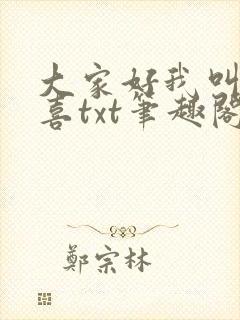 大家好我叫
喜txt筆趣閣
鄭宗林